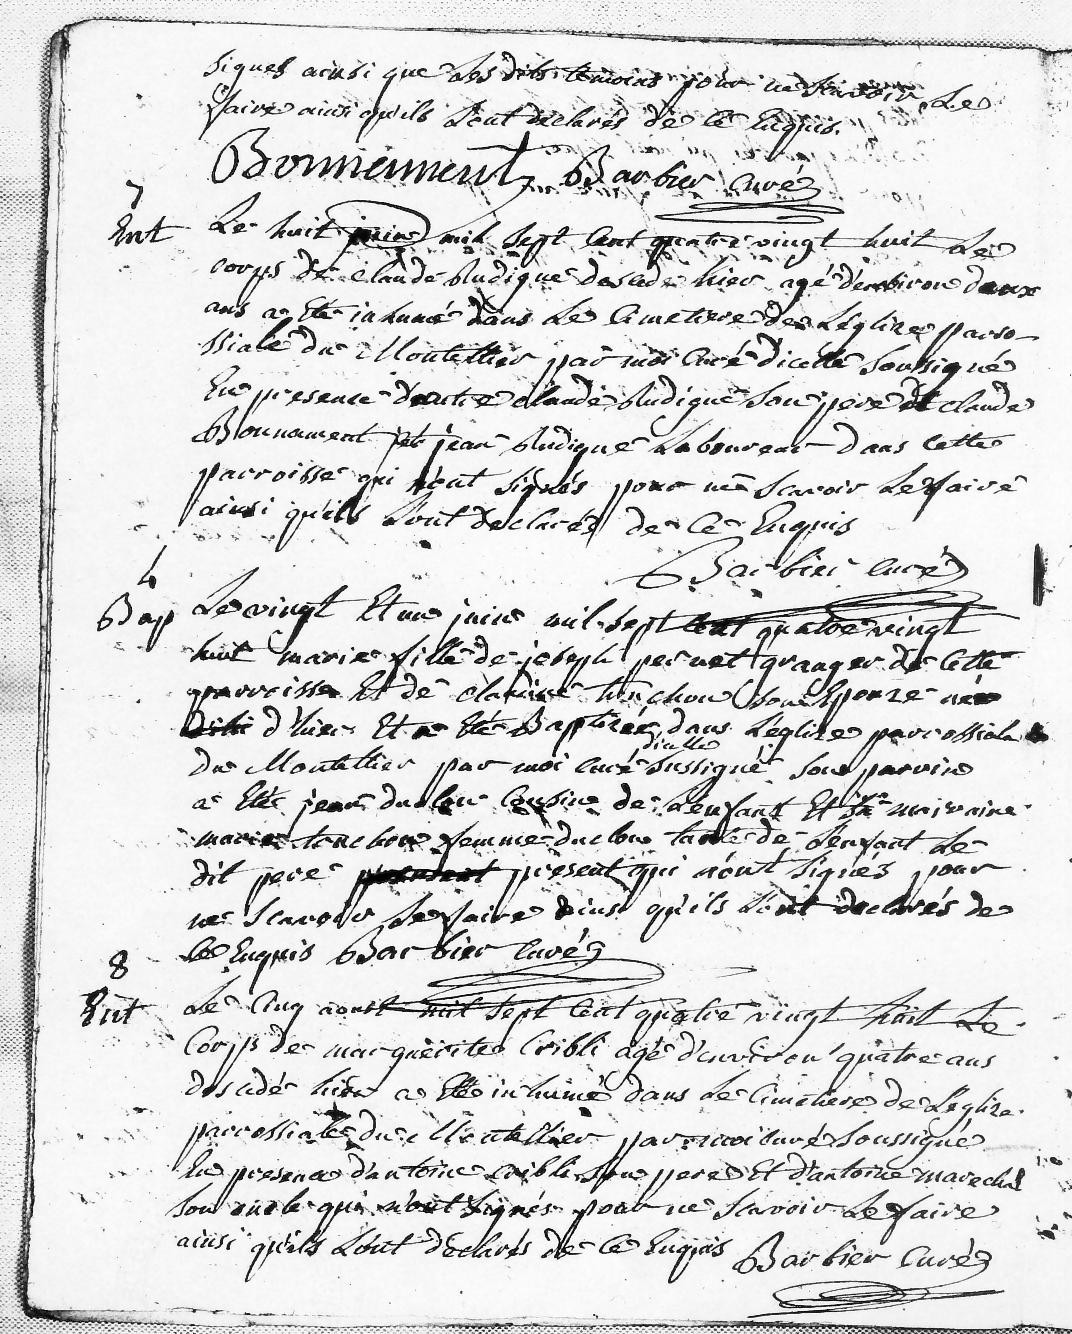 signes ainsi que les dits temoins pour ne scavoir Le
faire ainsi qu'ils L'ont declarés de ce Enquis.
Bonnement Barbier curé
7
Ent
Le huit juin mil sept Cent quatre vingt huit Le
corps de claude Audigué descedé hier agé d'environ deux
ans a Eté inhumé dans Le Cimetiere de L'eglise parro-
ssiale du Montellier par moi Curé d'icelle Soussigné
En presence d'autre claude Audigué Son pere et claude
Bonnament et jean Audigué Laboureur dans Cette
parroisse qui n'ont Signés pour ne Scavoir Le faire
ainsi qu'ils L'ont declarés de Ce Enquis
Barbier curé
4
Bap
Le vingt Et un juin mil sept Cent quatre vingt
huit marie fille de joseph pernet granger de Cette
parroisse Et de claudine Son Epouze née
d'hier Et a Eté Baptisée dans L'eglise parrossiale
du Montellier par moi curé d'icelle sussigné Son parrin
a Eté jean duclou Cousin de L'enfant Et sa mairaine
marie tonchon femme duclou tante de L'enfant Le
dit pere present qui n'ont Signés pour
ne Scavoir Le faire ainsi qu'ils L'ont declarés de
Ce Enquis Barbier Curé
8
Ent
Le Cinq aoust mil sept Cent quatre vingt huit Le
Corps de marguerite Cribli agé d'environ quatre ans
descedé hier a Eté inhumé dans Le Cimetiere de L'eglise
parrossiale du Montellier par moi Curé Soussigné
En presence d'antoine Cribli Son pere Et d'antoine marechal
Son oncle qui n'ont Signés pour ne Scavoir Le faire
ainsi qu'ils L'ont declarés de Ce Enquis Barbier Curé